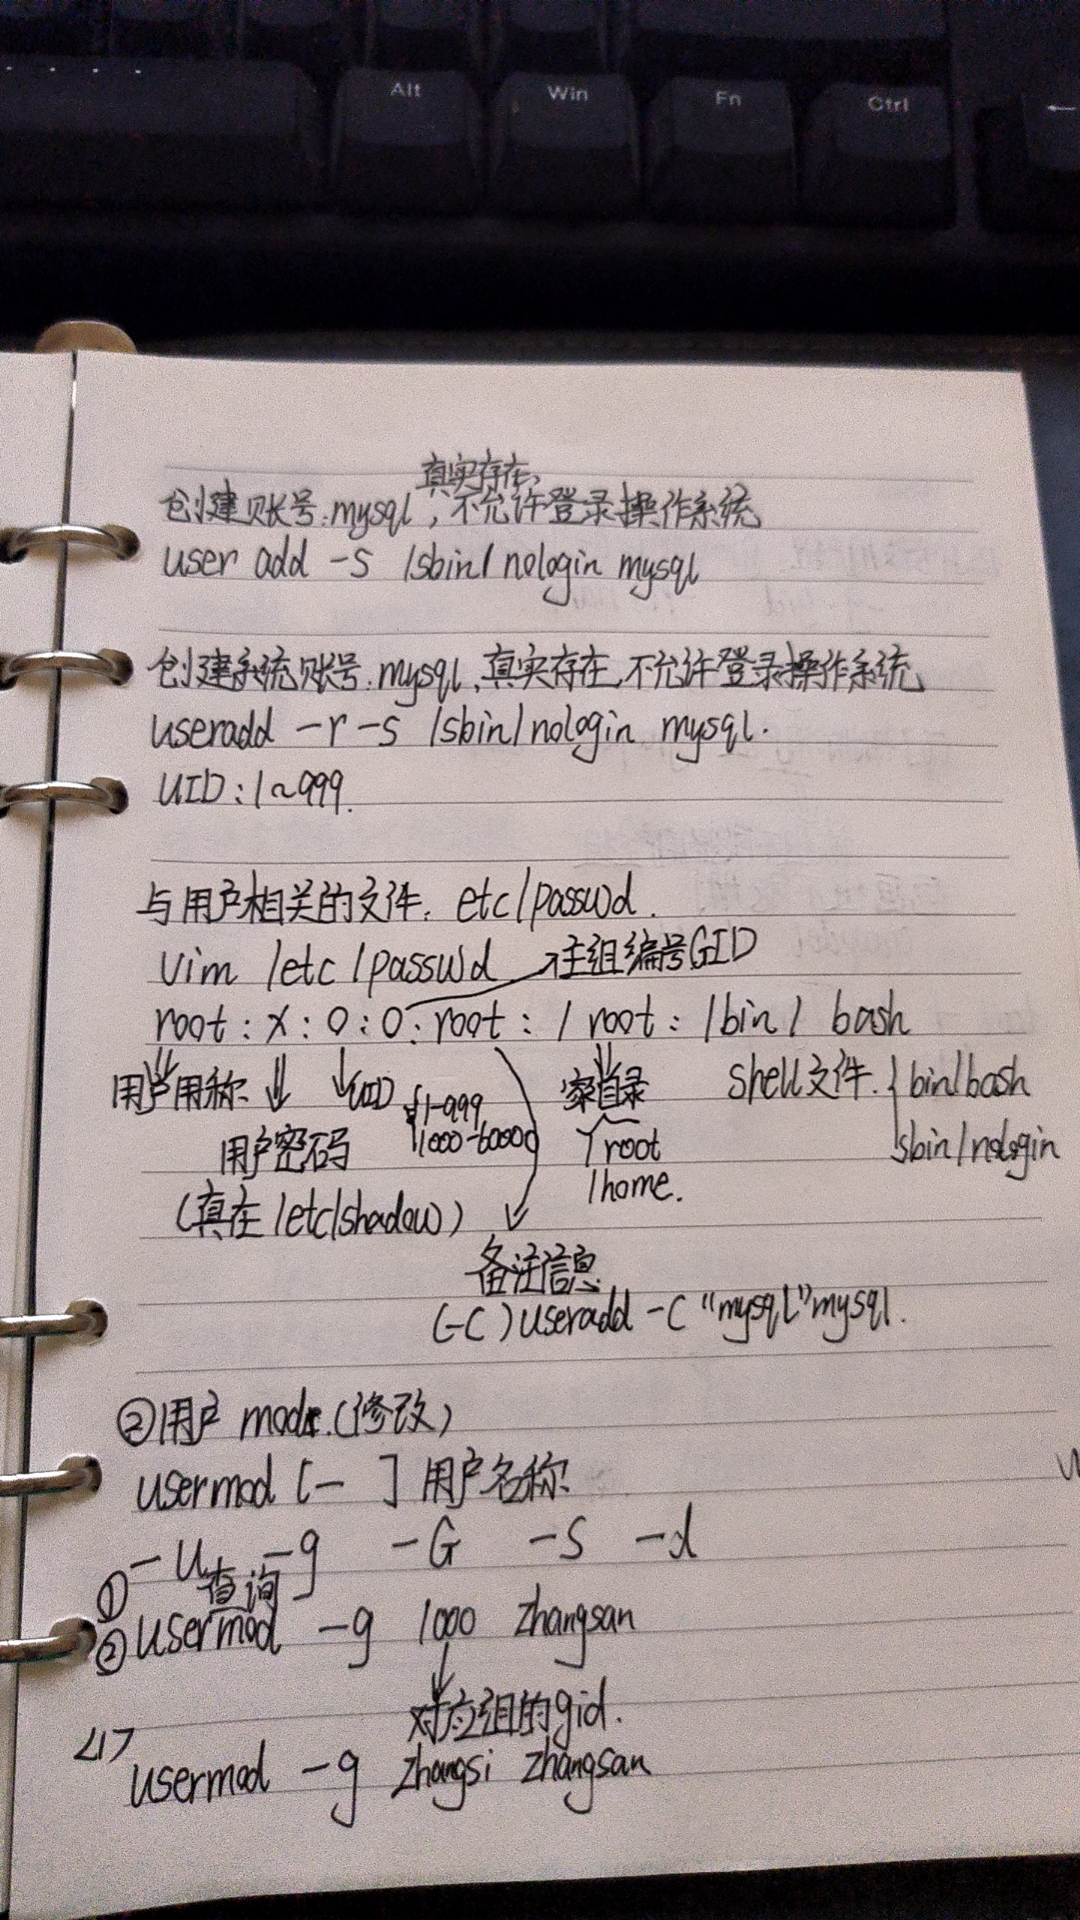 Alt Win Fn Ctrl ←
真实存在、
创建账号:mysql,不允许登录操作系统
user add -s /sbin/nologin mysql
创建系统账号:mysql、真实存在,不允许登录操作系统
useradd -r -s /sbin/nologin mysql.
UID:1~999.
与用户相关的文件: etc/passwd.
vim /etc/passwd 主组编号GID
root:x:0:0:root:/root:/bin/bash
用户用称 UID 1-999 家目录 shell文件. bin/bash
用户密码 1000-60000 /root sbin/nologin
(真在/etc/shadow) /home.
备注信息
(-c)useradd -c "mysql"mysql.
②用户mode.(修改)
usermod [- ] 用户名称
-u -g -G -s -d
① 查询
②usermod -g 1000 zhangsan
对应组的gid.
<1>
usermod -g zhangsi zhangsan